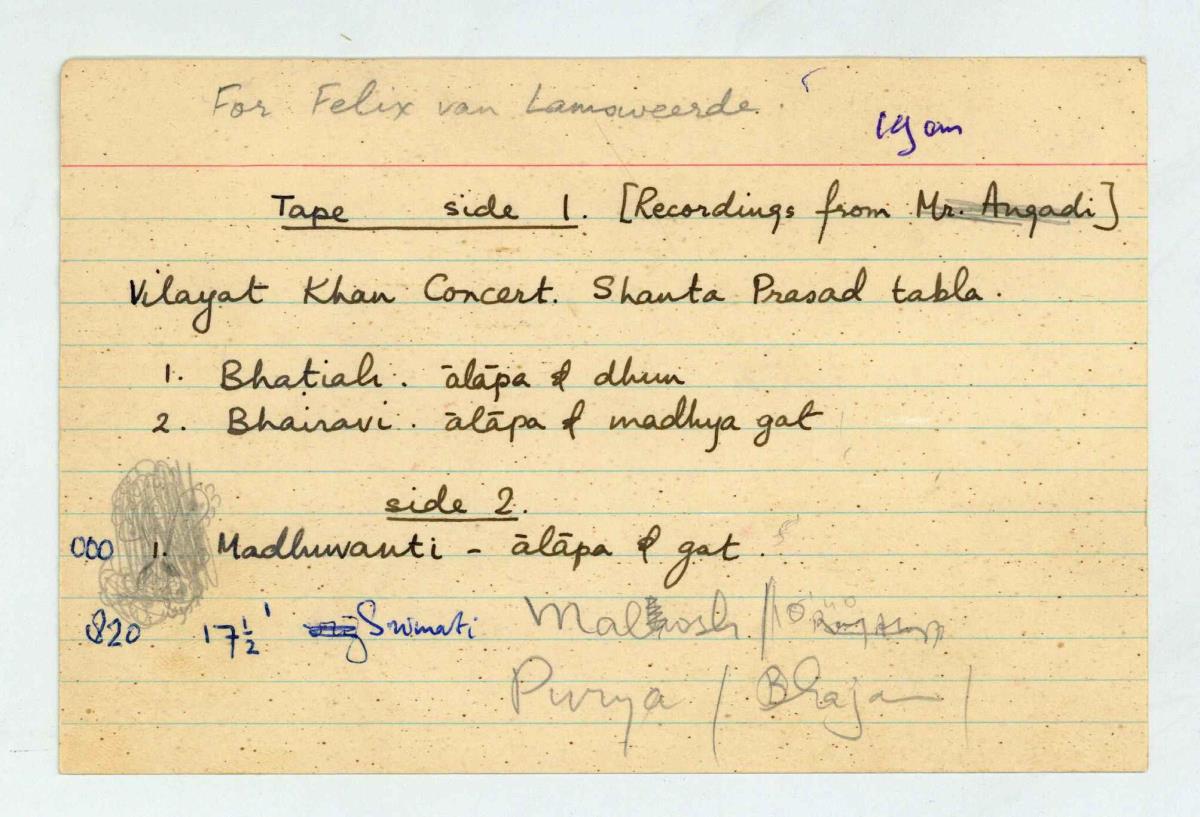 For Felix van Lamsweerde.
19 cm
Tape side 1. [Recordings from Mr. Angadi]
Vilayat Khan Concert. Shanta Prasad tabla.
1. Bhatiali. ālāpa & dhun
2. Bhairavi. ālāpa & madhya gat
side 2.
000 1. Madhuvanti - ālāpa & gat.
820 17½' Srimati Malkosh / 10'
Purya / Bhajan /